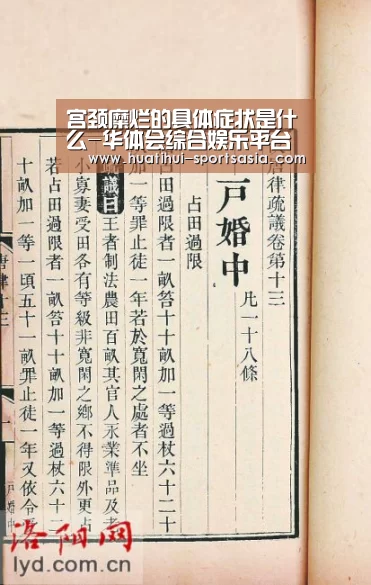 宫颈糜烂的具体症状是什
么-华体会综合娱乐平台
www.huatihui-sportsasia.com
律疏議卷第十三
戸婚中
凡一十八條
占田過限
田過限者一畝笞十十畝加一等過杖六十二十
加一等罪止徒一年若於寬閑之處者不坐
議曰王者制法農田百畝其官人永業準品及老
小寡妻受田各有等級非寬閑之鄉不得限外更占
若占田過限者一畝笞十十畝加一等過杖六十二
十畝加一等一頃五十一畝罪止徒一年又依令
戸婚中
洛阳网
lyd.com.cn